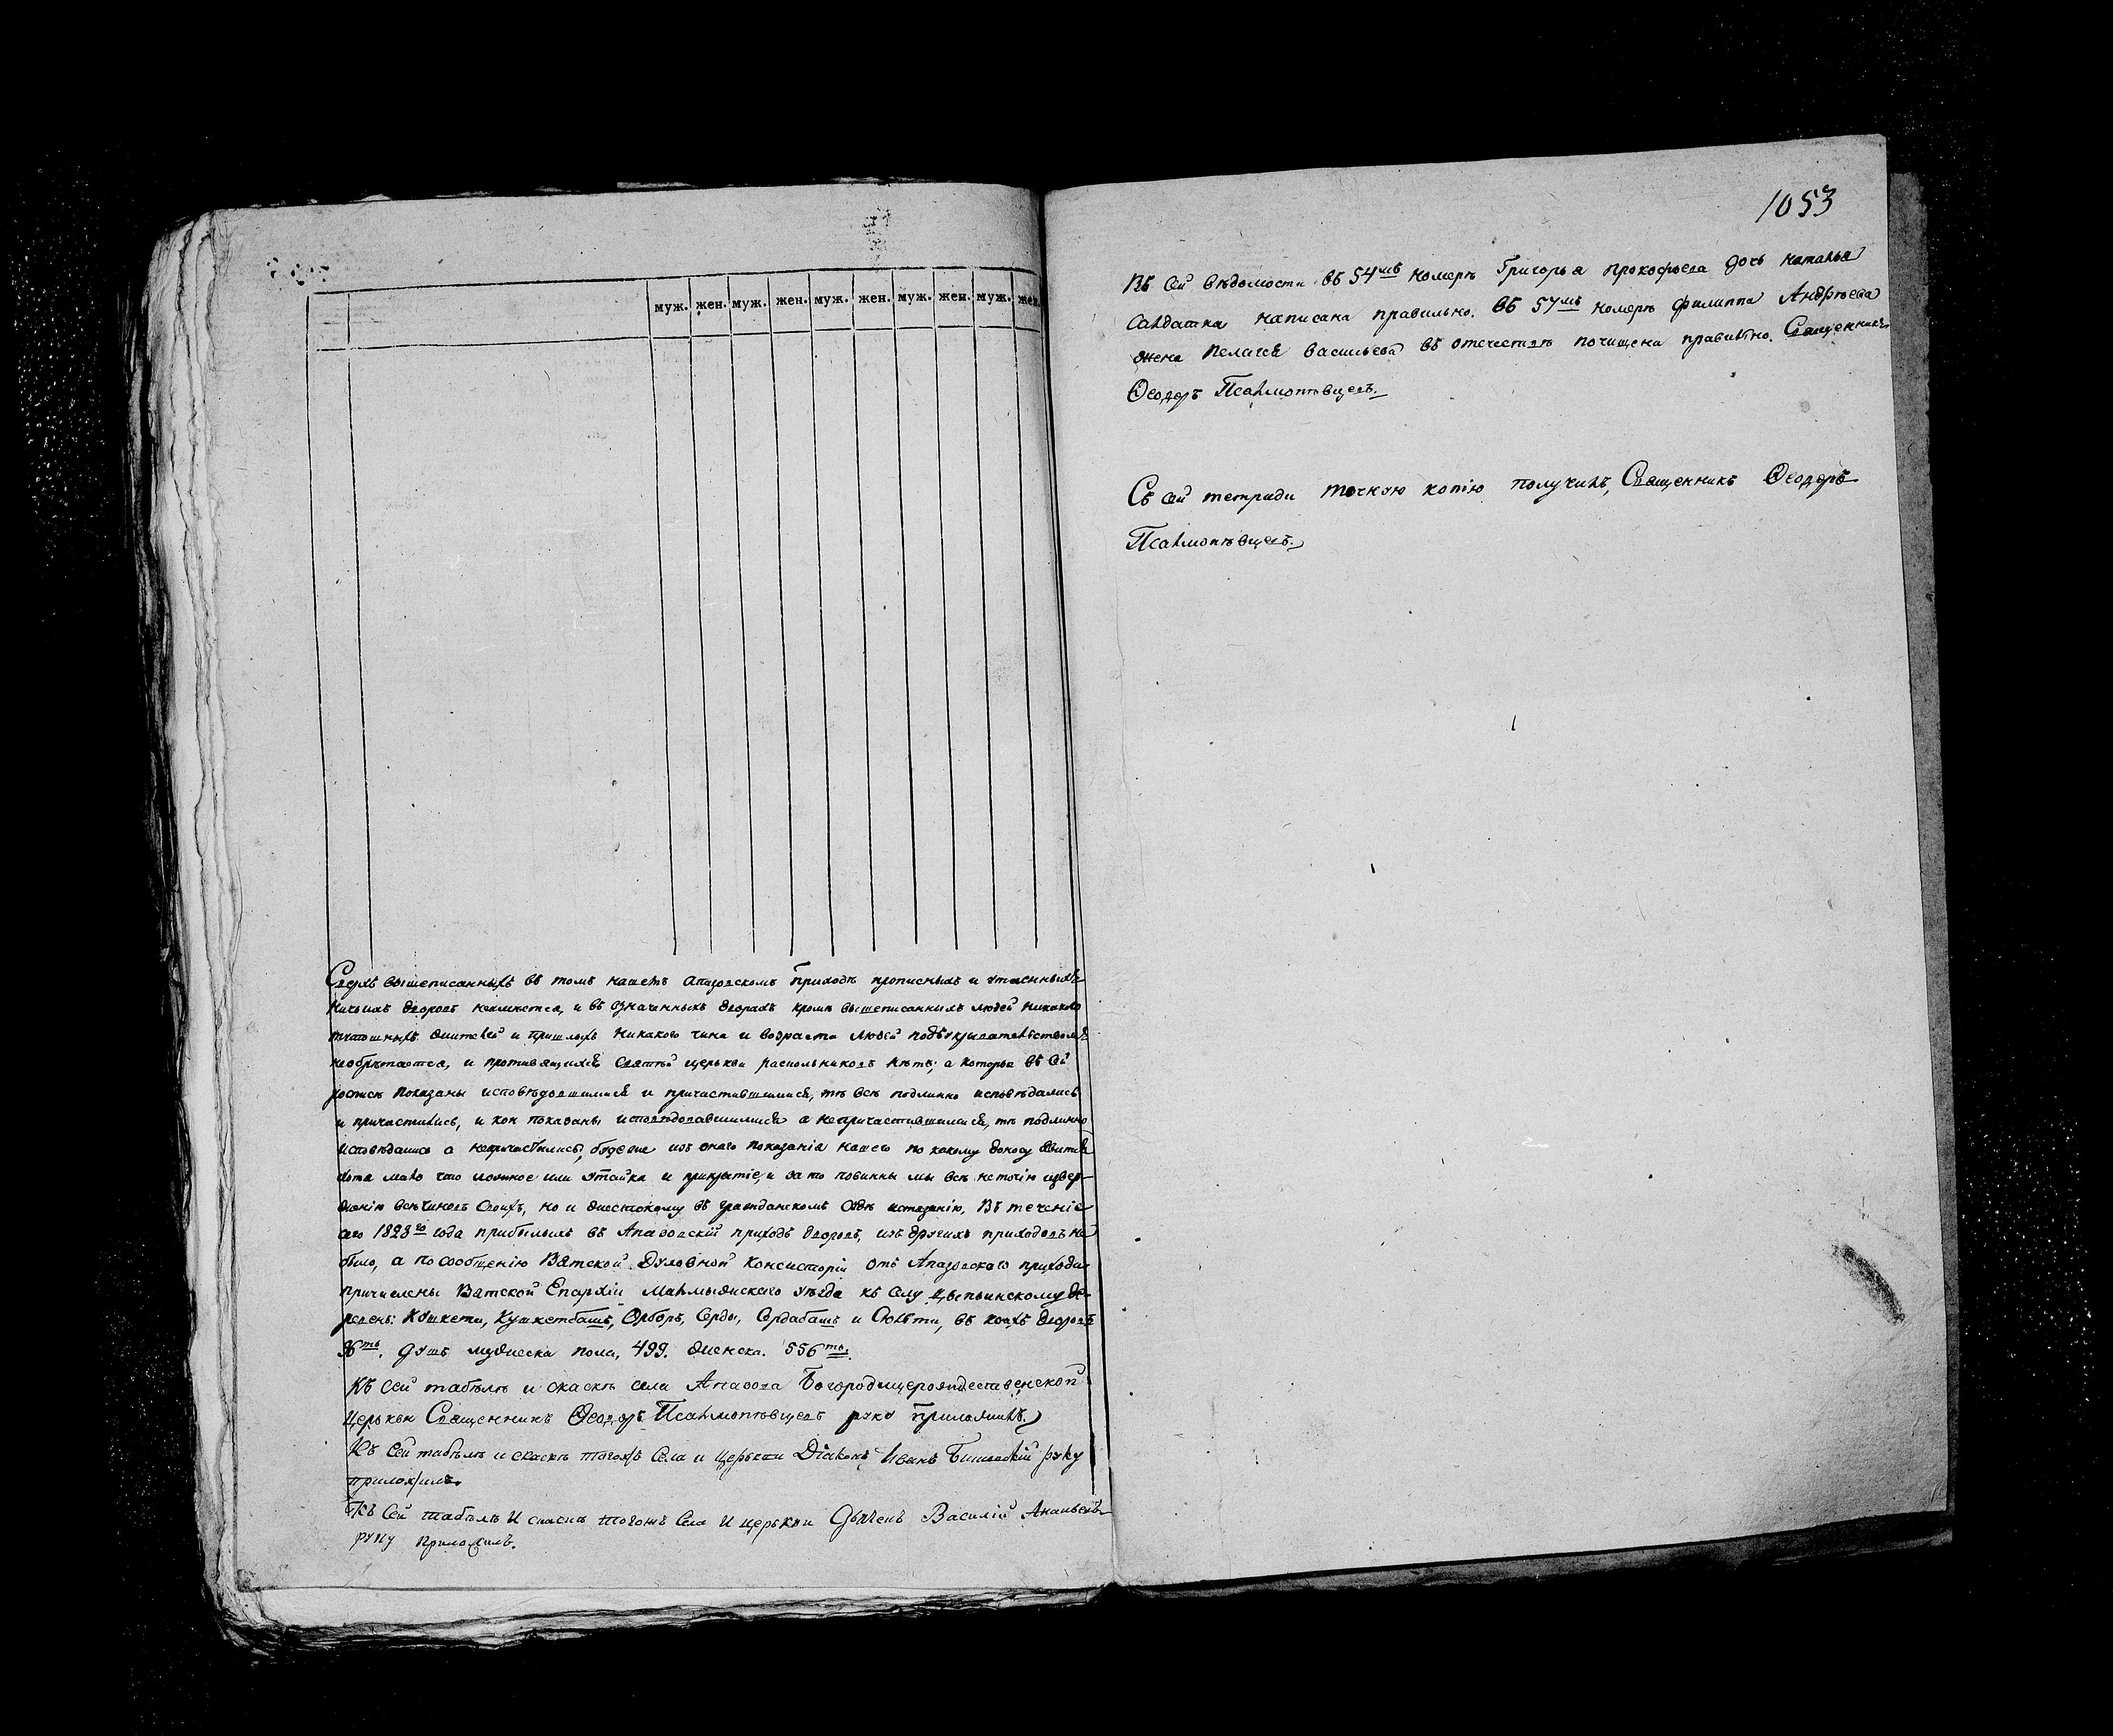 муж. жен. муж. жен. муж. жен. муж. жен. муж. жен.
Сверхъ вышеписанныхъ въ томъ нашемъ Апазовскомъ Приходѣ прописныхъ и утаенныхъ
ничьихъ дворовъ неимѣется, и въ означенныхъ дворахъ кромѣ вышеписанныхъ людей никаких
жителей и пришлыхъ никакого чина и возраста людей подъ укрывательствомъ
необрѣтается, и противящихся святѣй церькви раскольниковъ нѣтъ; а которые въ сей
росписѣ показаны исповѣдовшимися и причастившимися, тѣ всѣ подлинно исповѣдались
и причастились, и кои показаны исповѣдовавшимися а непричастившимися, тѣ подлинно
исповѣдались а непричастились, будеже изъ онаго показанія нашего по какому доносу явится
хотя мало что ложное или утайка и прикрытіе, и за то повинны мы всѣ неточію извер-
женію всѣ чиновъ своихъ, но и жестокому въ гражданскомъ судѣ истязанію, Въ теченіе
сего 1823го года прибылыхъ въ Апазовскій приходъ дворовъ, изъ другихъ приходовъ не
было, а по сообщенію Вятской Духовной Консисторіи отъ Апазовскаго прихода
причислены Вятской Епархіи Малмыжскаго уѣзда къ селу Цыпьинскому де-
ревень: Кошкети, Кушкетбашъ, Орборъ, Серды, Сердабашъ и Сюлѣти, въ коихъ дворовъ
душъ мужеска пола, 499. женска. 556ть.
Къ сей табѣлѣ и скаскѣ села Апазова Богородицерождественской
Церькви Священникъ Ѳеодоръ Псалмопѣвцевъ руку приложилъ.
Къ Сей табѣлѣ и скаскѣ тогожъ Села и Церькви Діаконъ Иванъ руку
приложилъ.
Къ Сей табѣлѣ и скаскѣ тогожъ Села и церькви Дьячекъ Василій Ананьевъ
руку приложилъ.
1053
Въ сей вѣдомости въ 54мъ номерѣ Григорья Прокофьева дочь Наталья
Салдатка написана правильно. въ 57мъ номерѣ Филиппа Андрѣева
жена Пелагея Васильева въ отечествѣ почищена правильно. Священникъ
Ѳеодоръ Псалмопѣвцевъ.
Съ сей тетради точную копію получилъ, Священникъ Ѳеодоръ
Псалмопѣвцевъ.